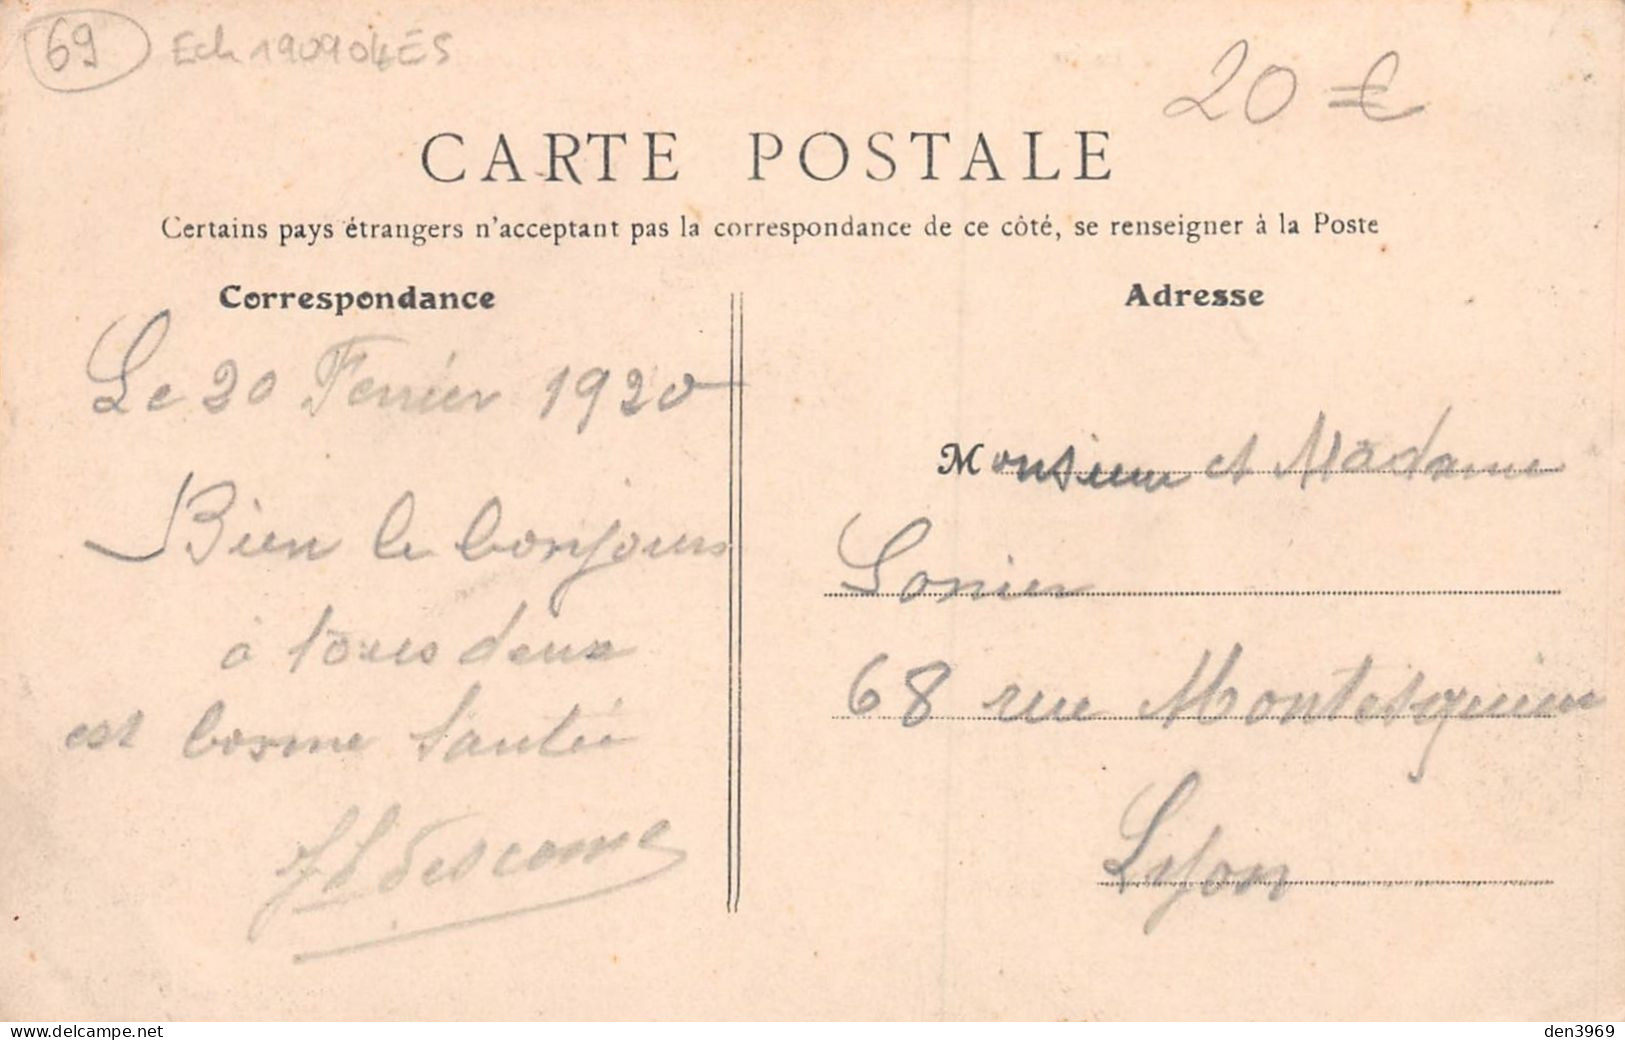 69 Ech 190904ES
20 €
CARTE POSTALE
Certains pays étrangers n'acceptant pas la correspondance de ce côté, se renseigner à la Poste
Correspondance
Le 20 Fevrier 1920
Bien le bonjour
à tous deux
est bonne Santée
Adresse
Monsieur et Madame
Sonier
68 rue Montesquieu
Lyon
www.delcampe.net
den3969